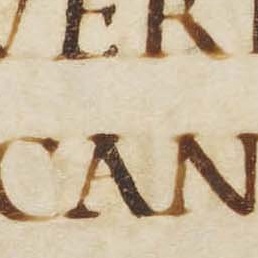 VER
CAN